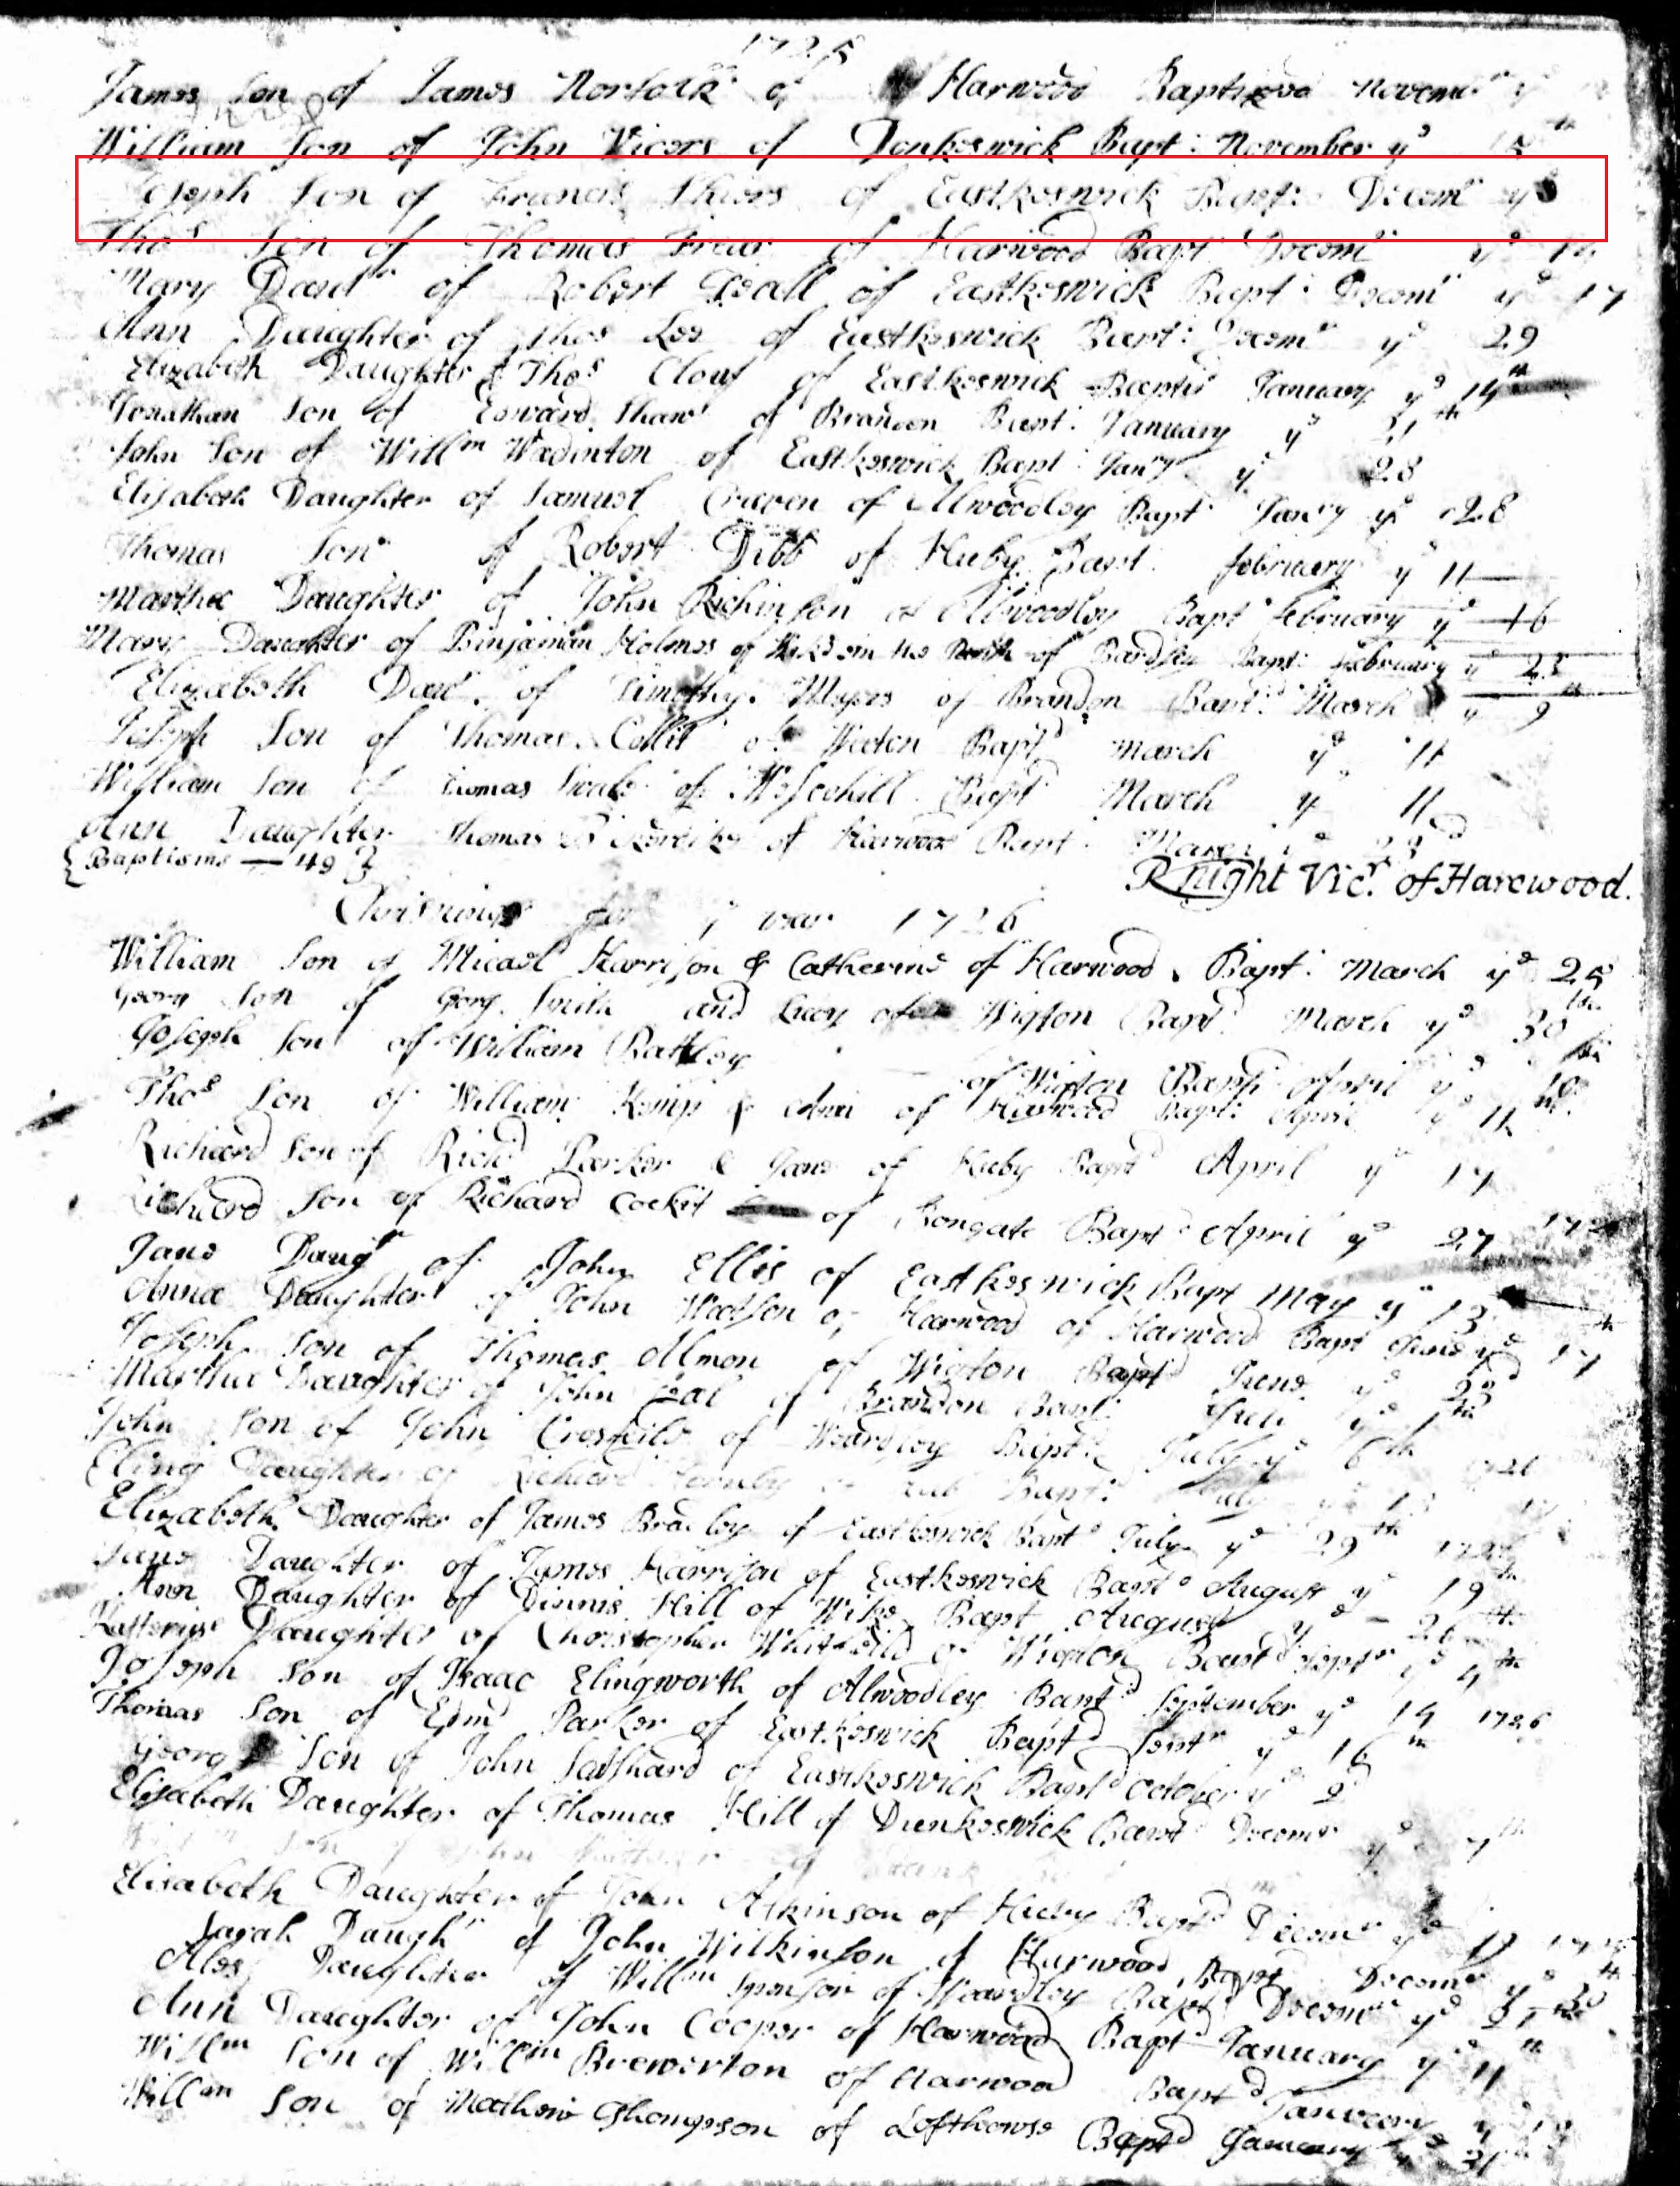 1725
James Son of James Norfolk of Harwood Baptized Novem:r ye
William Son of John Vicors of Dunkeswick Bapt: November ye 15th
Joseph Son of Francis Shiers of Eastkeswick Bapt: Decemr ye
Thos Son of Thomas Frear of Harwood Bapt Decemr ye
Mary Daur of Robert Teall of Eastkeswick Bapt: Decemr ye 17
Ann Daughter of Thos Lee of Eastkeswick Bapt: Decemr ye 29
Elizabeth Daughter of Thos Clouf of Eastkeswick Baptis January ye 14th
Jonathan Son of Edward Shaw of Brandon Bapt: January ye 21th
John Son of Willm Wadinton of Eastkeswick Bapt: Jany ye 28
Elisabeth Daughter of Samuel Craven of Allwoodley Bapt Jany ye 28
Thomas Son of Robert Dibb of Huby Bapt: february ye 11
Martha Daughter of John Richinson of Allwoodley Bapt february ye 16
Mary Daughter of Binjaman Holmes of in the of Bardsey Bapt: february ye 23
Elizabeth Dau. of Timothy Myers of Brandon Bapt: March ye 9th
Joseph Son of Thomas Collit of Weeton Baptd March ye 11
William Son of Thomas of Wescohill Bapt March ye 11
Ann Daughter Thomas of Harwood Bapt March ye 23d
{Baptisms — 49}
R Knight Vicr. of Harewood.
Chrisnings for ye year 1726
William Son of Micael Harrison & Catherine of Harwood Bapt: March ye 25
Georg Son of Gorg Smith and Lucy of Wigton Bapt: March ye 30th
Joseph Son of William Rattley
of Wigton Bapt: April ye 10th
Thos Son of William Kemp & Ann of Harwood Bapt: April ye 11th
Richard Son of Richd Parker & Jane of Huby Bapt April ye 17
Richard Son of Richard Cockit of Rongate Bapt: April ye 27 172
Jane Daugr of John Ellis of Eastkeswick Bapt May ye 13
Anna Daughter of John Watson of Harwood of Harwood Bapt June ye 17th
Joseph Son of Thomas Almon of Wigton Baptd June ye 23d
Martha Daughter of John Teal of Brandon Bapt: July ye 1th
John Son of John Crosfeild of Weardley Bapt: July ye 6th
Eling Daughter of Richard Hornby of Bapt: July ye 1726
Elizabeth Daughter of James Bradley of Eastkeswick Bapt July ye 29th 1726
Jane Daughter of James Harrison of Eastkeswick Bapt August ye 19th
Ann Daughter of Dinnis Hill of Wike Bapt August ye 26th
Katterine Daughter of Christopher Whitfeild of Wigton Bapt Septr ye 4th
Joseph Son of Isaac Elingworth of Alwoodley Baptd September ye 14 1726
Thomas Son of Edmd Parker of Eastkeswick Baptd Septr ye 16th
Georg Son of John Sathard of Eastkeswick Baptd October ye 2d
Elisabeth Daughter of Thomas Hill of Dunkeswick Bapt Decemr ye 7th
Son of John of
Elisabeth Daughter of John Atkinson of Huby Baptd Decemr ye 19
Sarah Daughr of John Wilkinson of Harwood Bapt Decemr ye 30th
Ales Daughter of Willm Sponson of Weardley Baptd Decemr ye
Ann Daughter of John Cooper of Harwood Bapt January ye 11th
Willm Son of Willm Brewerton of Harwood Baptd January ye
Willm Son of Mathew Thompson of Lofthowse Baptd January ye 31